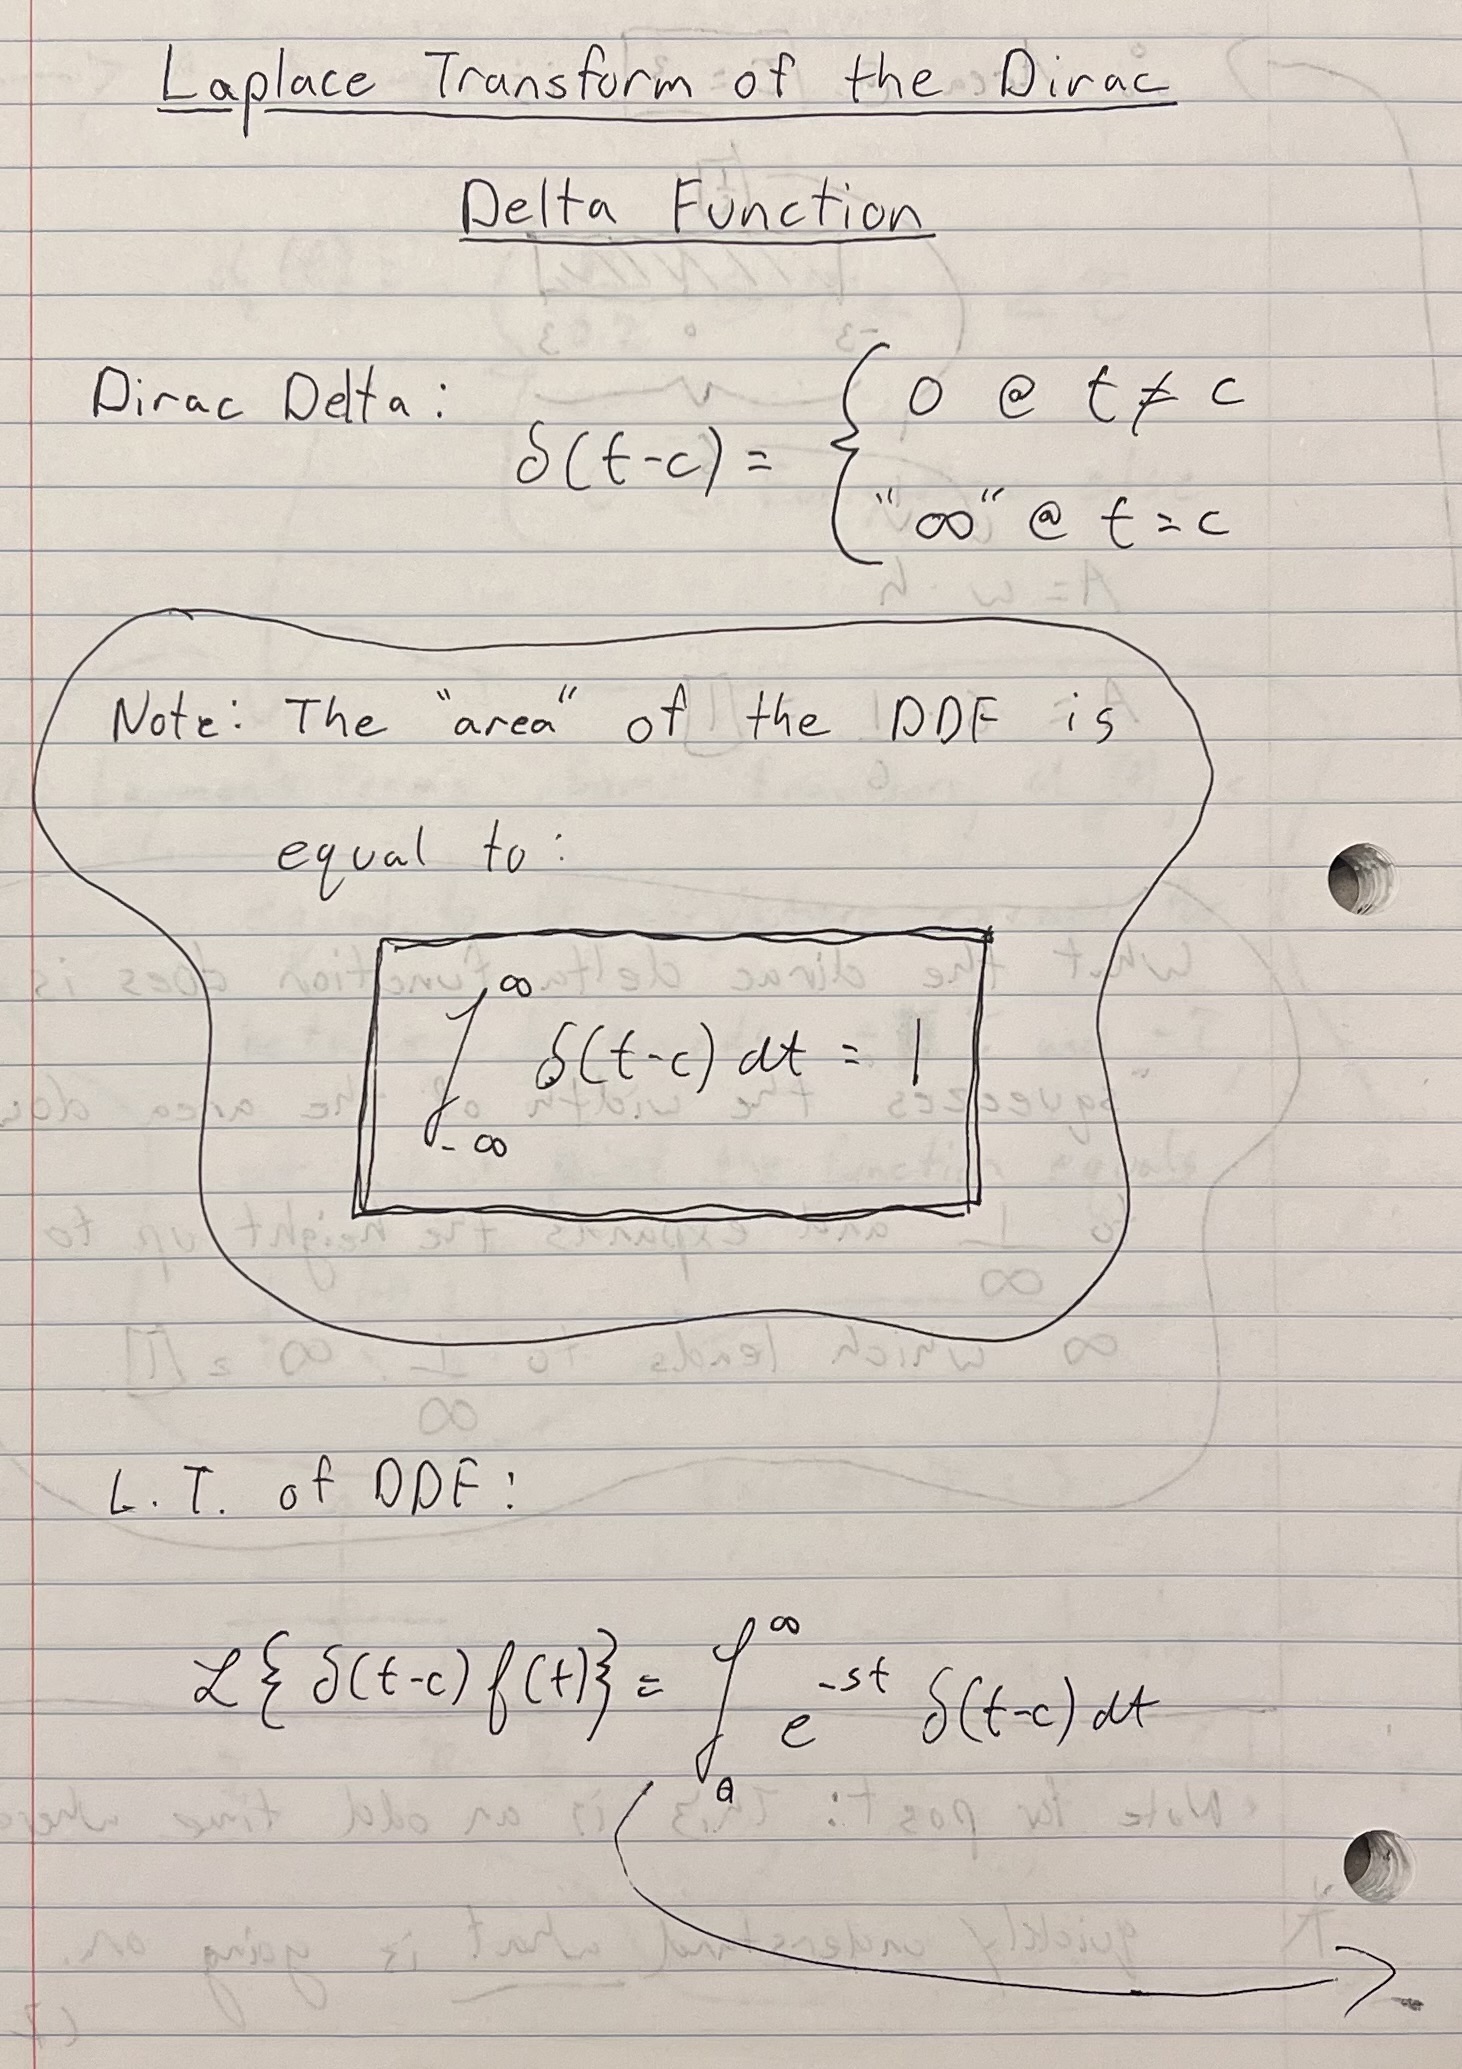 Laplace Transform of the Dirac
Delta Function
Dirac Delta:
δ(t-c) = { 0 @ t ≠ c
"∞" @ t = c
Note: The "area" of the DDF is
equal to:
∫_{-∞}^{∞} δ(t-c) dt = 1
L.T. of DDF:
ℒ{δ(t-c) f(t)} = ∫_0^∞ e^{-st} δ(t-c) dt